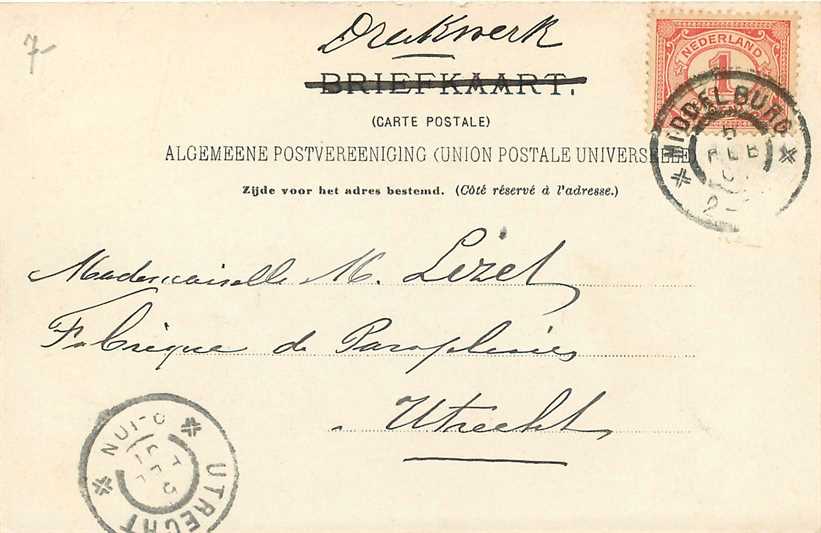 7-
Drukwerk
BRIEFKAART.
(CARTE POSTALE)
ALGEMEENE POSTVEREENIGING (UNION POSTALE UNIVERSELLE)
Zijde voor het adres bestemd. (Côté réservé à l'adresse.)
NEDERLAND
1
MIDDELBURG
5
FEB
Mademoiselle M. Lezel
Fabrique de Parapluies
Utrecht
UTRECHT